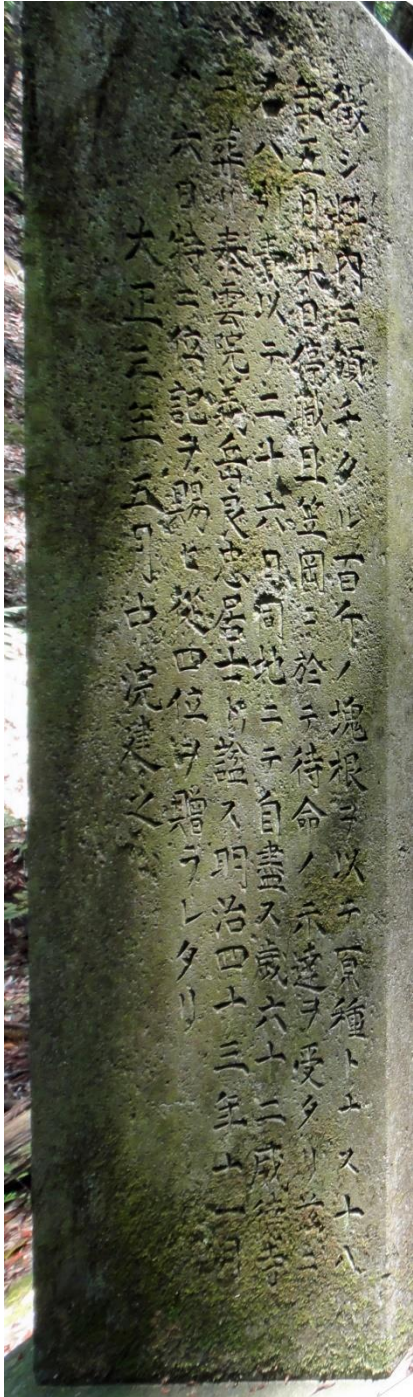 徴シ料内ニ頒チタル百斤ノ塊根ヲ以テ原種トナス十八
年五月某日停職且笠岡ニ於テ待命ノ示達ヲ受タリ茲ニ
君ハ引責以テ二十六日同地ニテ自盡ス歳六十二威徳寺
ニ葬リ泰雲院義岳良忠居士ト諡ス明治四十三年十一月
六日特ニ位記ヲ賜ヒ從四位ヲ贈ラレタリ
大正三年五月 建之